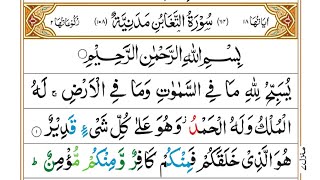 اٰیاتها ۱۸ (۶۴) سُوْرَةُ التَّغَابُنِ مَدَنِیَّةٌ (۱۰۸) رکوعاتها ۲
بِسْمِ اللّٰهِ الرَّحْمٰنِ الرَّحِیْمِ
یُسَبِّحُ لِلّٰهِ مَا فِی السَّمٰوٰتِ وَمَا فِی الْاَرْضِ ۚ لَهُ
الْمُلْكُ وَلَهُ الْحَمْدُ ؗ وَهُوَ عَلٰی كُلِّ شَیْءٍ قَدِیْرٌ ۱
هُوَ الَّذِیْ خَلَقَكُمْ فَمِنْكُمْ كَافِرٌ وَّمِنْكُمْ مُّؤْمِنٌ ؕ